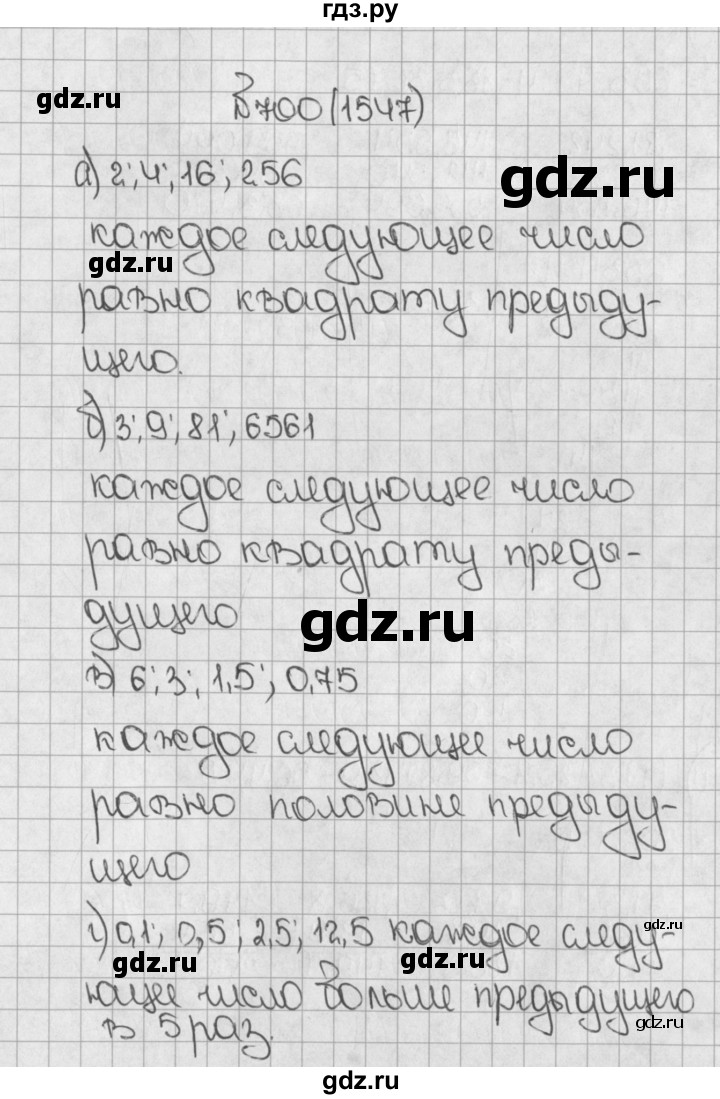 гдз.ру
gdz.ru
700(1547)
а) 2; 4; 16; 256
gdz.ru
каждое следующее число
gdz.ru
равно квадрату предыду-
щего.
б) 3; 9; 81; 6561
каждое следующее число
равно квадрату преды-
дущего
gdz.ru
в) 6; 3; 1,5; 0,75
каждое следующее число
равно половине предыду-
щего
г) 0,1; 0,5; 2,5; 12,5 каждое следу-
gdz.ru
gdz.ru
gdz.ru
ющее число больше предыдущего
в 5 раз.
gdz.ru
gdz.ru